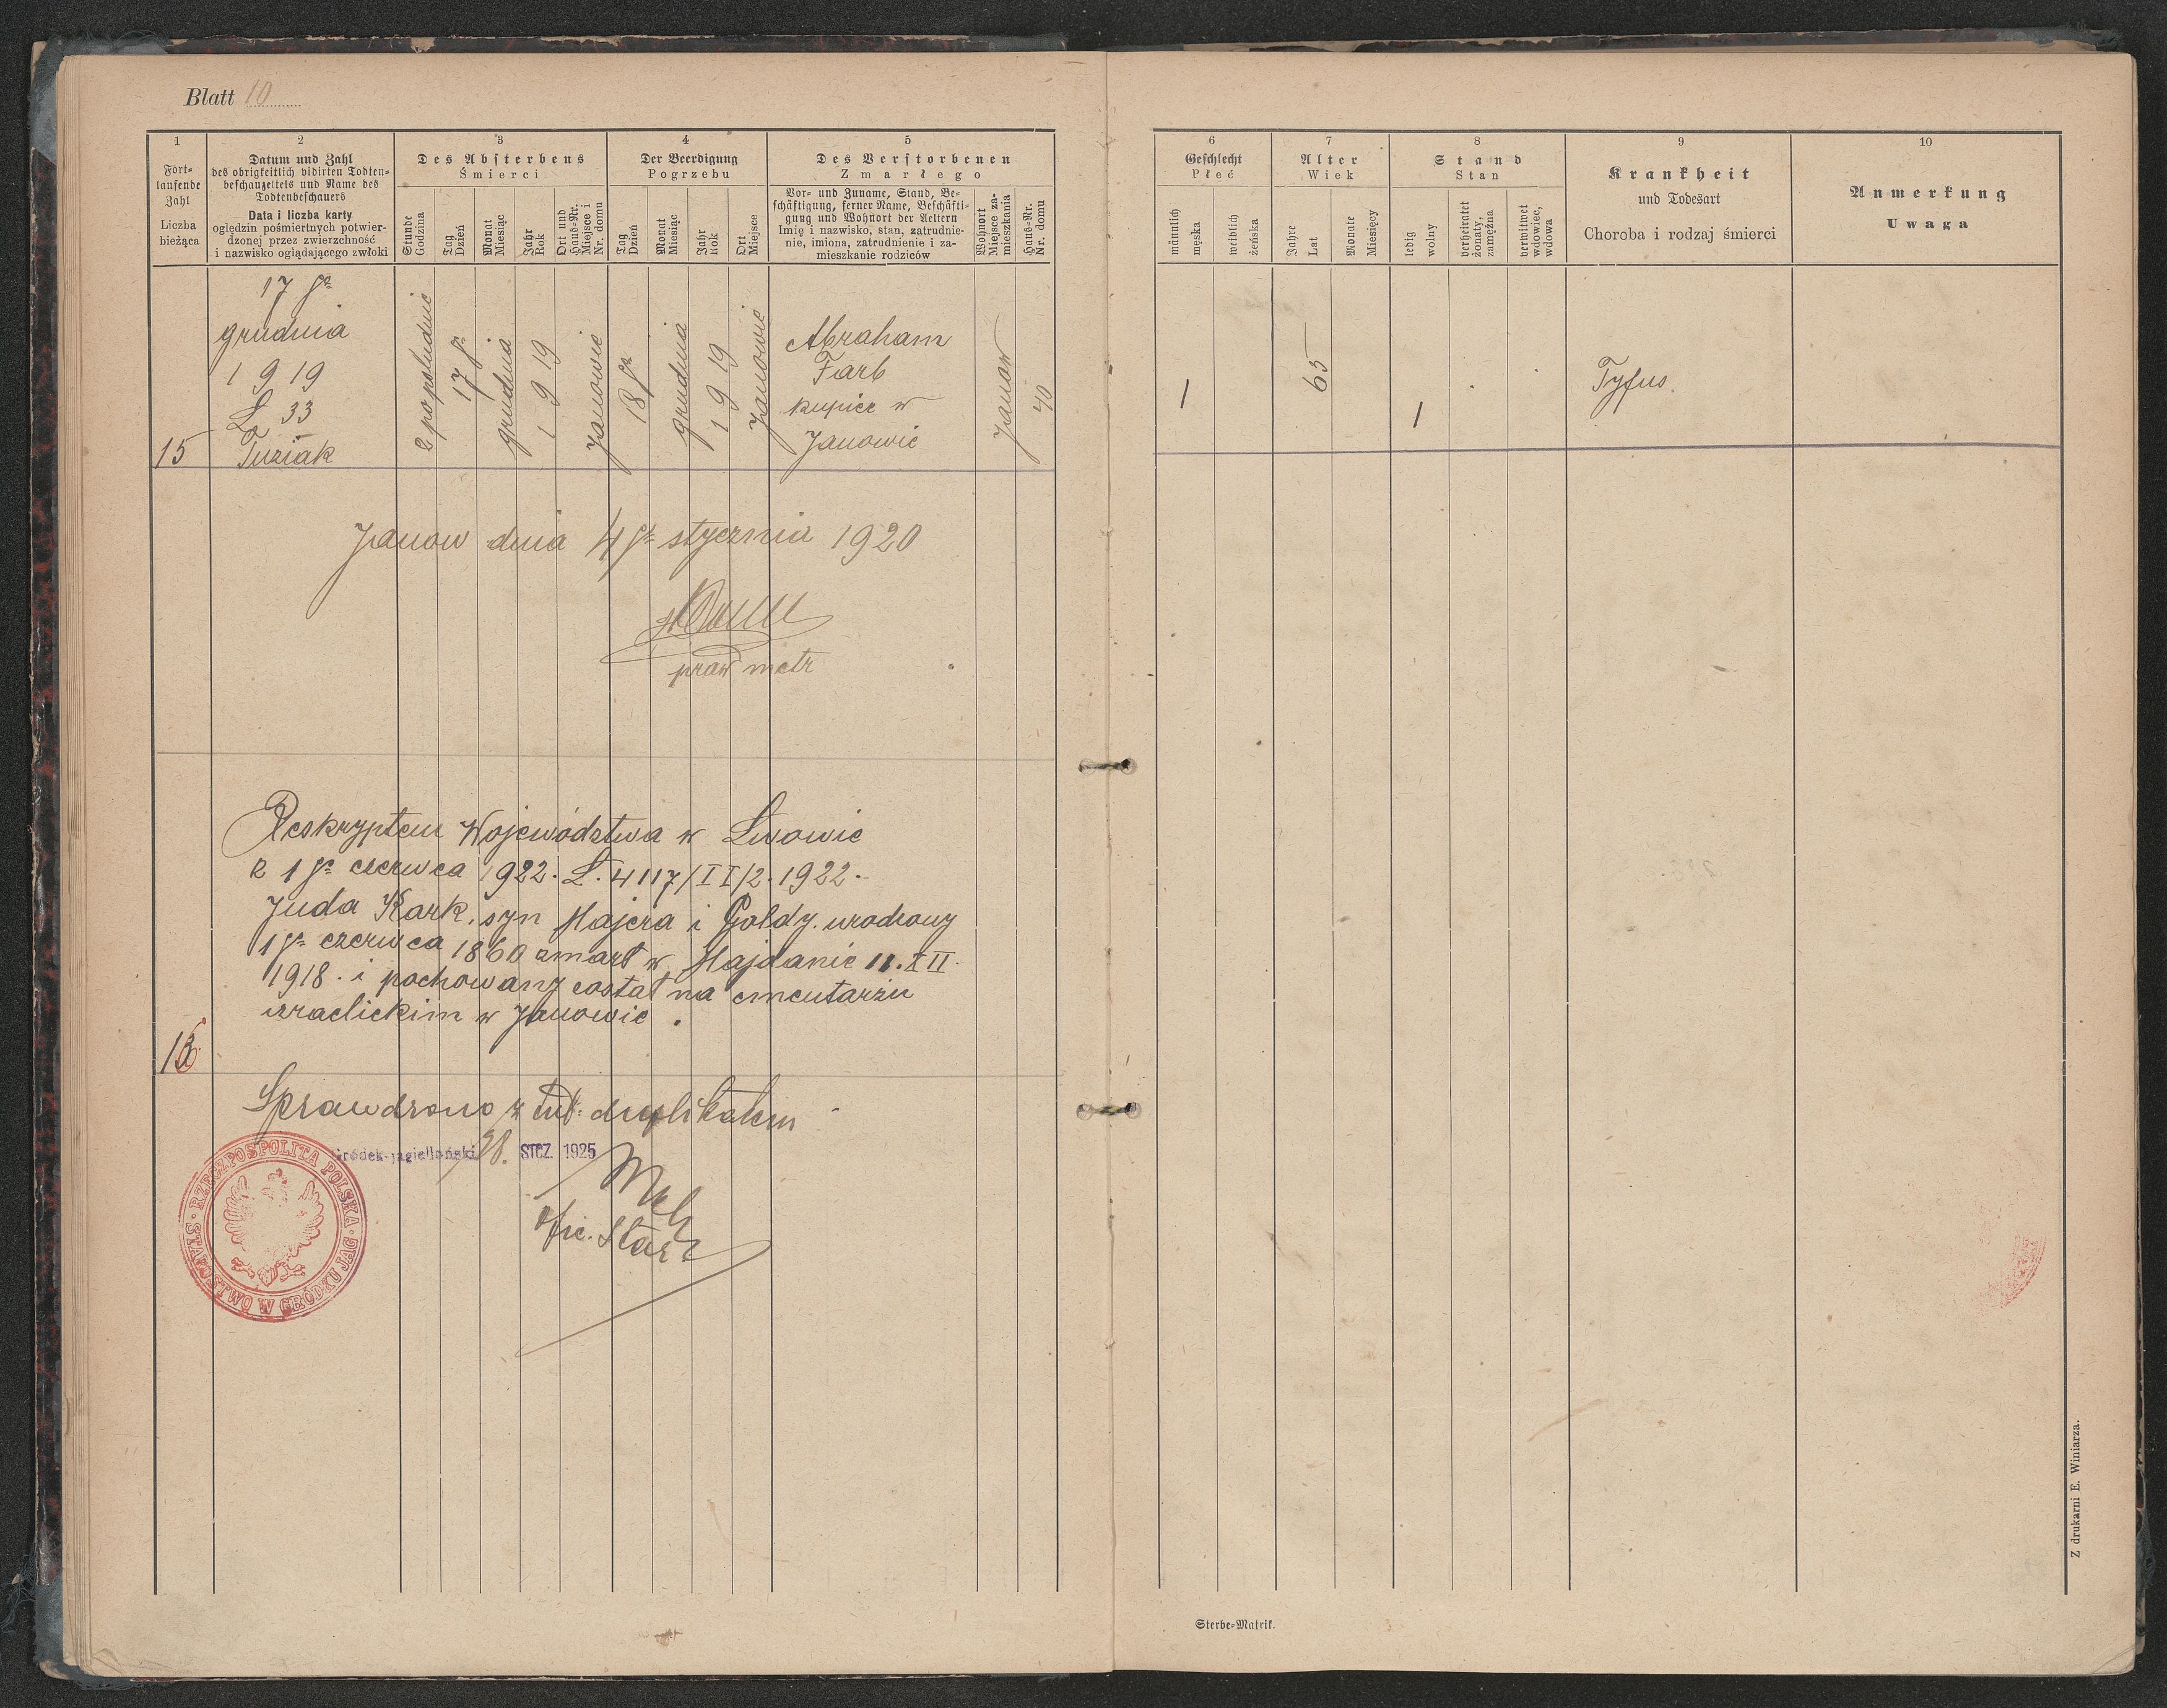 Blatt 10
1
Fort-
laufende
Zahl
Liczba
bieżąca
2
Datum und Zahl
des obrigkeitlich vidirten Todten-
beschauzettels und Name des
Todtenbeschauers
Data i liczba karty
oględzin pośmiertnych potwier-
dzonej przez zwierzchność
i nazwisko oglądającego zwłoki
3
Des Absterbens
Śmierci
Stunde
Godzina
Tag
Dzień
Monat
Miesiąc
Jahr
Rok
Ort und
Haus-Nr.
Miejsce i
Nr. domu
4
Der Beerdigung
Pogrzebu
Tag
Dzień
Monat
Miesiąc
Jahr
Rok
Ort
Miejsce
5
Des Verstorbenen
Zmarłego
Vor- und Zuname, Stand, Be-
schäftigung, ferner Name, Beschäfti-
gung und Wohnort der Aeltern
Imię i nazwisko, stan, zatrudnie-
nie, imiona, zatrudnienie i za-
mieszkanie rodziców
Wohnort
Miejsce za-
mieszkania
Haus-Nr.
Nr. domu
6
Geschlecht
Płeć
männlich
męska
weiblich
żeńska
7
Alter
Wiek
Jahre
Lat
Monate
Miesięcy
8
Stand
Stan
ledig
wolny
verheiratet
żonaty,
zamężna
verwitwet
wdowiec,
wdowa
9
Krankheit
und Todesart
Choroba i rodzaj śmierci
10
Anmerkung
Uwaga
15
17 go
grudnia
1919
L 33
Tuziak
2 po południu
17 go
grudnia
1919
Janowie
18 go
grudnia
1919
Janowie
Abraham
Farb
kupiec w
Janowie
Janow
40
1
65
1
Tyfus.
Janow dnia 4 go stycznia 1920
praw metr
Reskryptem Województwa w Lwowie
z 1 go czerwca 1922. L. 4117/II/2. 1922.
Juda Kark, syn Majera i Goldy. urodzony
1 go czerwca 1860 zmarł w Majdanie 11. XII.
1918. i pochowany został na cmentarzu
izraelickim w Janowie.
16
Sprawdzono z tut. duplikatem
Gródek-jagielloński 28. STCZ. 1925
ofic. Star
RZECZPOSPOLITA POLSKA · STAROSTWO W GRÓDKU JAG.
Sterbe-Matrik.
Z drukarni E. Winiarza.